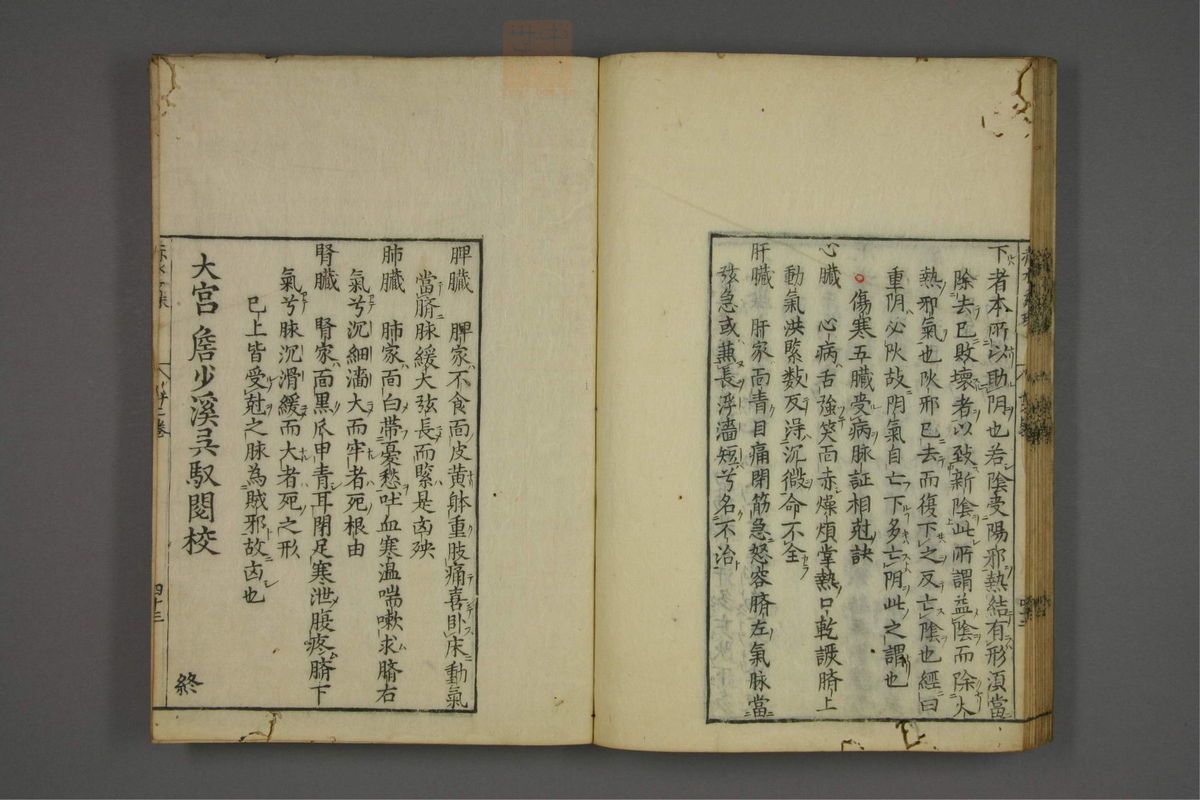 下者本所以助阴也若陰受陽邪熱結有形湏當
除去已敗壞者以致新陰此所謂益陰而除火
熱邪氣也阦邪已去而復下之反亡陰也經曰
重阴必阦故阴氣自亡下多亡阴此之謂也
傷寒五臟受病脉証相尅訣
心臟 心病舌強笑而赤燥煩掌熱口乾譩臍上
動氣洪緊数反浔沉微命不全
肝臟 肝家面青目痛閉筋急怒容臍左氣脉當
弦急或兼長浮濇短兮名不治
脾臟 脾家不食面皮黄躰重肢痛喜卧床動氣
當臍脉緩大弦長而緊是凶殃
肺臟 肺家面白帯憂愁吐血寒温喘嗽求臍右
氣兮沉細濇大而牢者死根由
腎臟 腎家面黒爪甲青耳閉足寒泄腹疼臍下
氣兮脉沉滑緩而大者死之形
已上皆受尅之脉為賊邪故凶也
大宫 詹少溪吴馭閲校
四十三
終